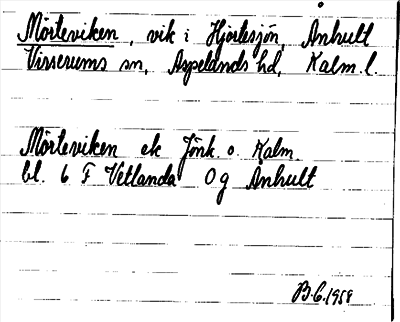 Mörteviken, vik i Hjortesjön, Änhult
Virserums sn, Aspelands hd, Kalm. l.
Mörteviken ek Jönk. o. Kalm.
bl. 6 F Vetlanda Og Änhult
B.G. 1958